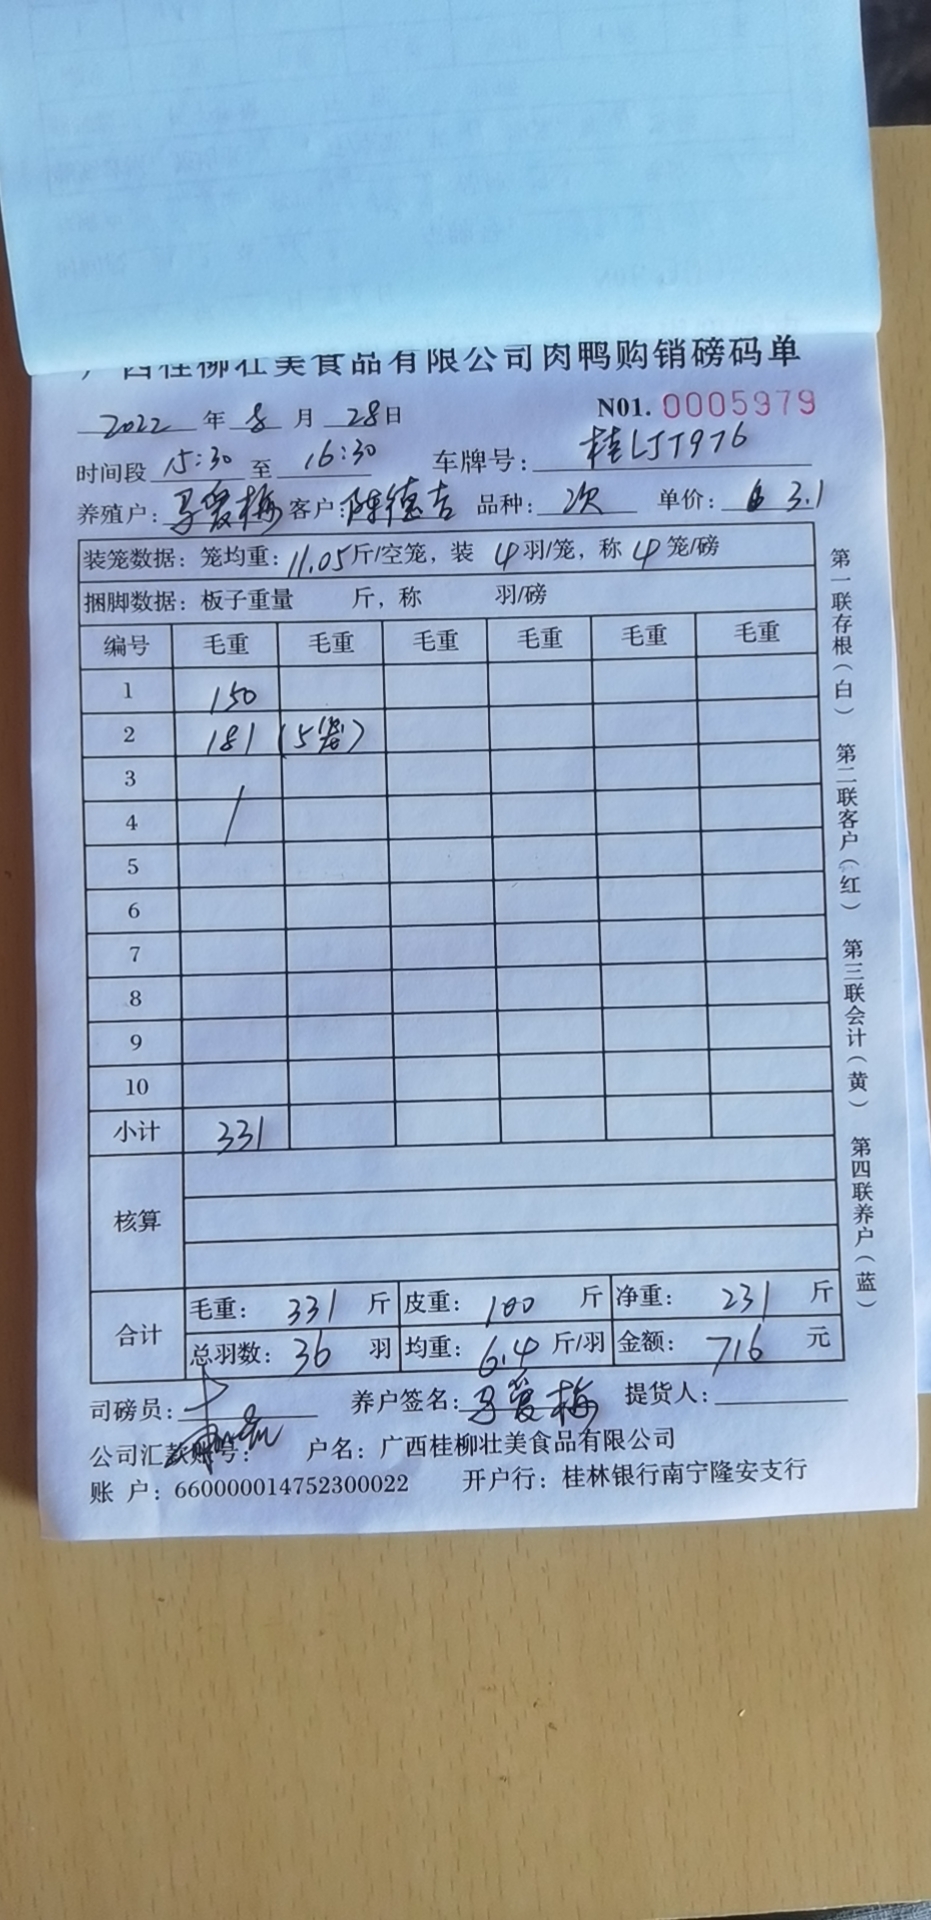 广西桂柳壮美食品有限公司肉鸭购销磅码单
2022年8月28日 N01.0005979
时间段 15:30 至 16:30 车牌号：桂LJT976
养殖户：马爱梅 客户：陈德吉 品种：次 单价：3.1
装笼数据：笼均重：11.05斤/空笼，装4羽/笼，称4笼/磅
捆脚数据：板子重量 斤，称 羽/磅
编号 毛重 毛重 毛重 毛重 毛重 毛重
1 150
2 181 (5笼)
3
4
5
6
7
8
9
10
小计 331
核算
合计 毛重：331斤 皮重：100斤 净重：231斤
总羽数：36羽 均重：6.4斤/羽 金额：716元
司磅员： 养户签名：马爱梅 提货人：
公司汇款账号： 户名：广西桂柳壮美食品有限公司
账 户：660000014752300022 开户行：桂林银行南宁隆安支行
第一联存根（白） 第二联客户（红） 第三联会计（黄） 第四联养户（蓝）